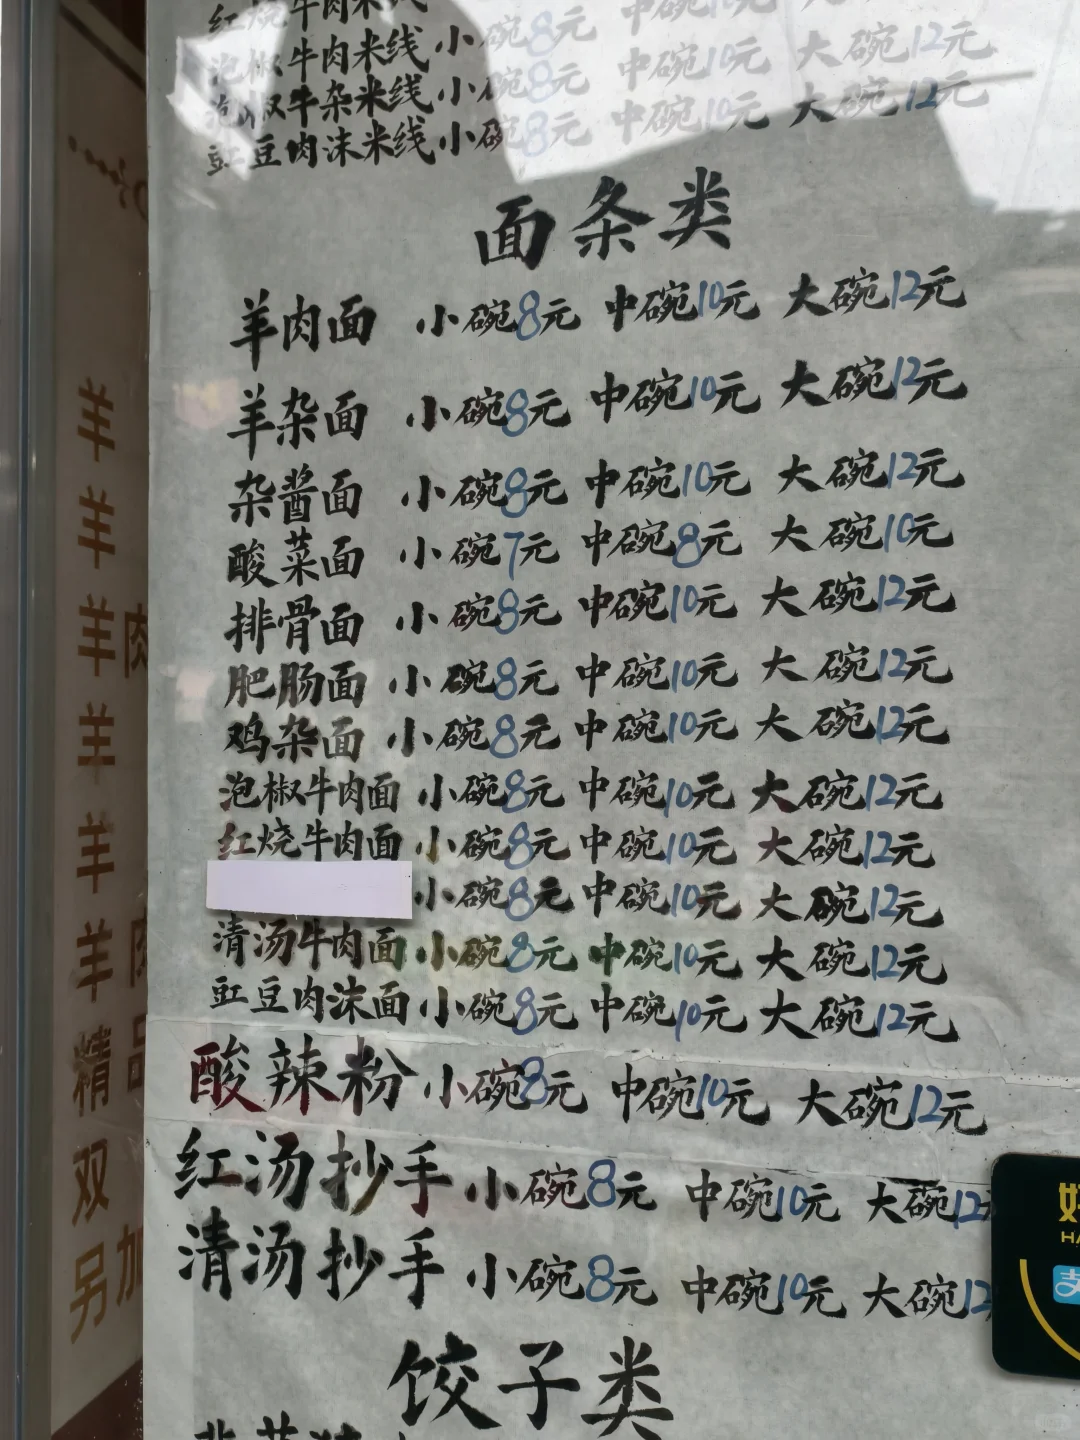 红烧牛肉米线 小碗8元 中碗10元
泡椒牛肉米线 小碗8元 中碗10元 大碗12元
泡椒牛杂米线 小碗8元 中碗10元 大碗12元
豇豆肉沫米线 小碗8元 中碗10元 大碗12元
面条类
羊肉面 小碗8元 中碗10元 大碗12元
羊杂面 小碗8元 中碗10元 大碗12元
杂酱面 小碗8元 中碗10元 大碗12元
酸菜面 小碗7元 中碗8元 大碗10元
排骨面 小碗8元 中碗10元 大碗12元
肥肠面 小碗8元 中碗10元 大碗12元
鸡杂面 小碗8元 中碗10元 大碗12元
泡椒牛肉面 小碗8元 中碗10元 大碗12元
红烧牛肉面 小碗8元 中碗10元 大碗12元
小碗8元 中碗10元 大碗12元
清汤牛肉面 小碗8元 中碗10元 大碗12元
豇豆肉沫面 小碗8元 中碗10元 大碗12元
酸辣粉 小碗8元 中碗10元 大碗12元
红汤抄手 小碗8元 中碗10元 大碗12元
清汤抄手 小碗8元 中碗10元 大碗12
饺子类
羊
羊
羊肉
羊
羊
羊肉
精品
双
另加